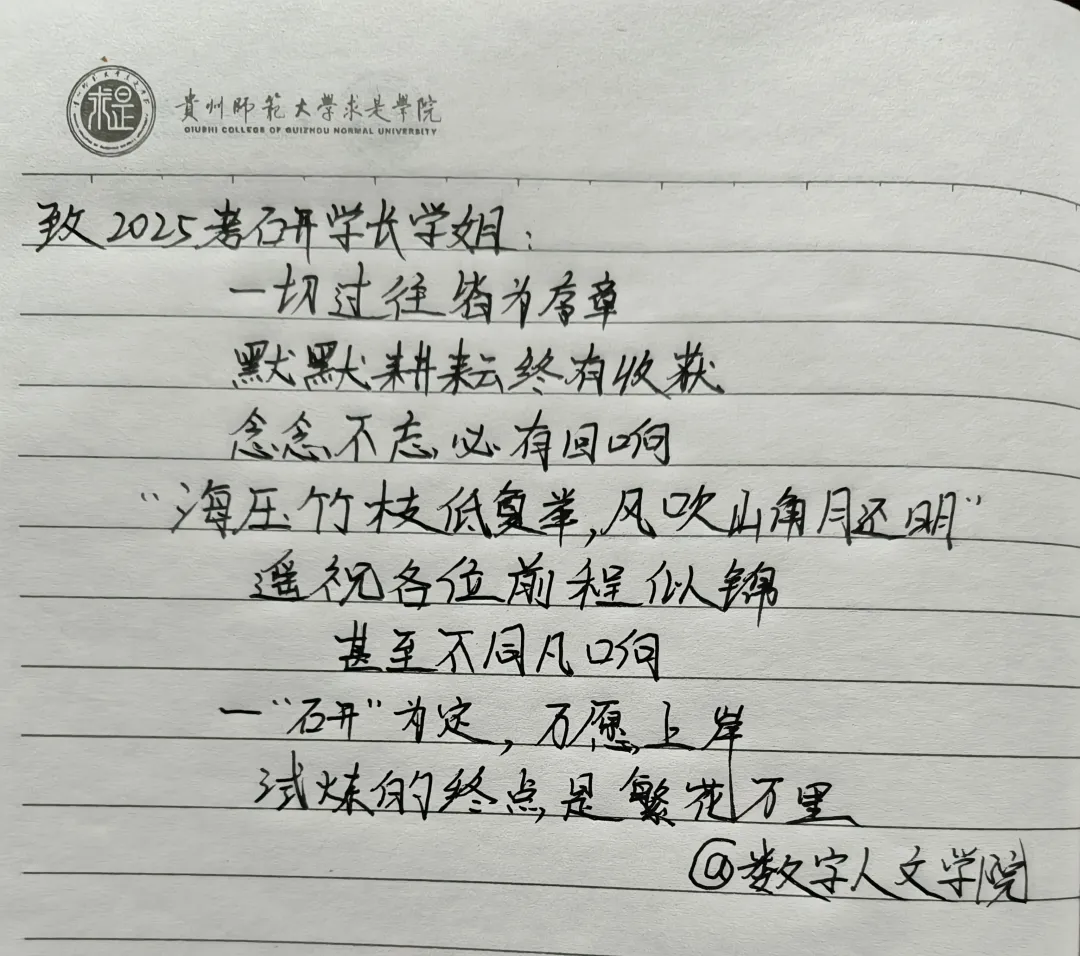 求是
貴州師範大學求是學院
QIUSHI COLLEGE OF GUIZHOU NORMAL UNIVERSITY
致2025考研学长学姐:
一切过往皆为序章
默默耕耘终有收获
念念不忘必有回响
“海压竹枝低复举,风吹山角月还明”
遥祝各位前程似锦
甚至不同凡响
一“研”为定,万愿上岸
试炼的终点是繁花万里
@数字人文学院